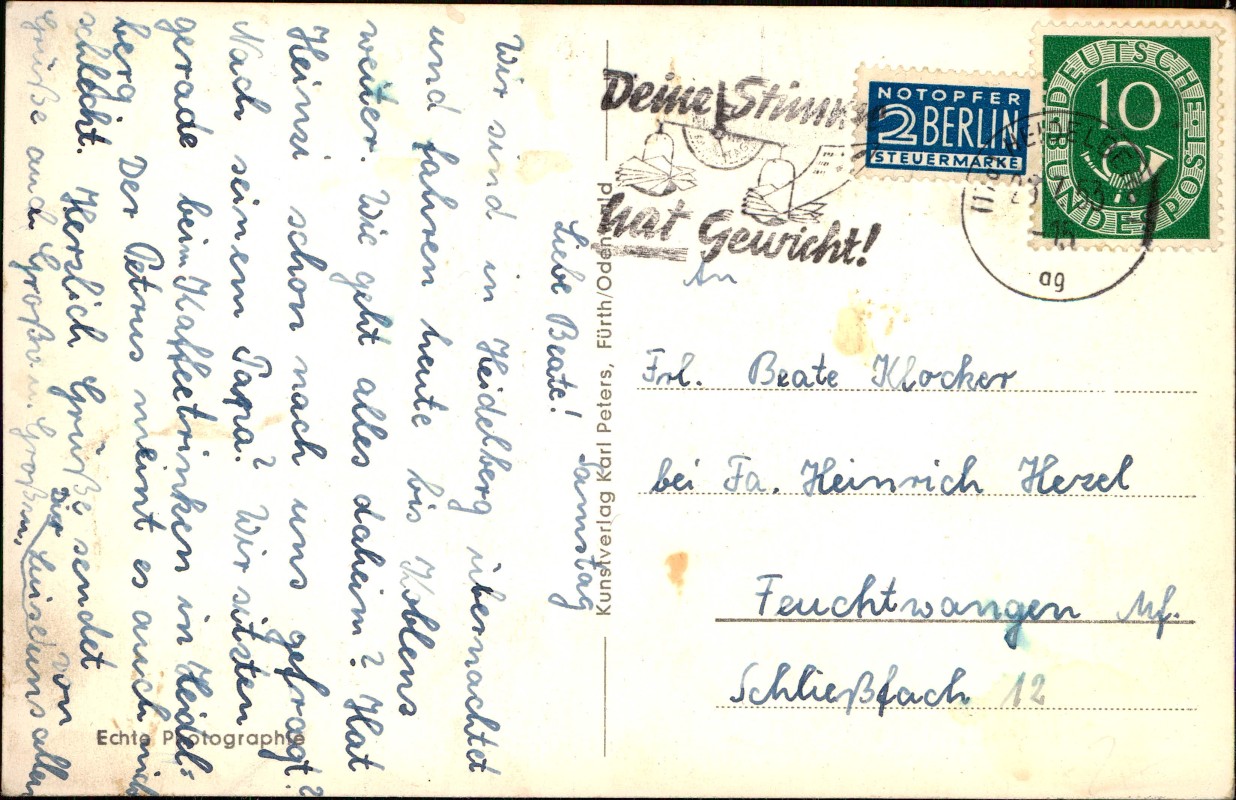 Liebe Beate! Samstag
Wir sind in Heidelberg übernachtet
und fahren heute bis Koblens
weiter. Wie geht alles daheim? Hat
Heinsi schon nach uns gefragt?
Nach seinem Papa? Wir sitsten
gerade beim Kaffeetrinken in Heidel-
berg. Der Petrus meint es auch nicht
schlecht. Herslich Grüße sendet
Dir von
Grüße auch Großva. Großm, Luise Uns allen
Echte Photographie
Kunstverlag Karl Peters, Fürth/Odenwald
Deine Stimme
hat Gewicht!
NOTOPFER
2 BERLIN
STEUERMARKE
DEUTSCHE BUNDESPOST
10
HEIDELBE
-15
ag
An
Frl. Beate Klocker
bei Fa. Heinrich Hezel
Feuchtwangen Mf.
Schließfach 12